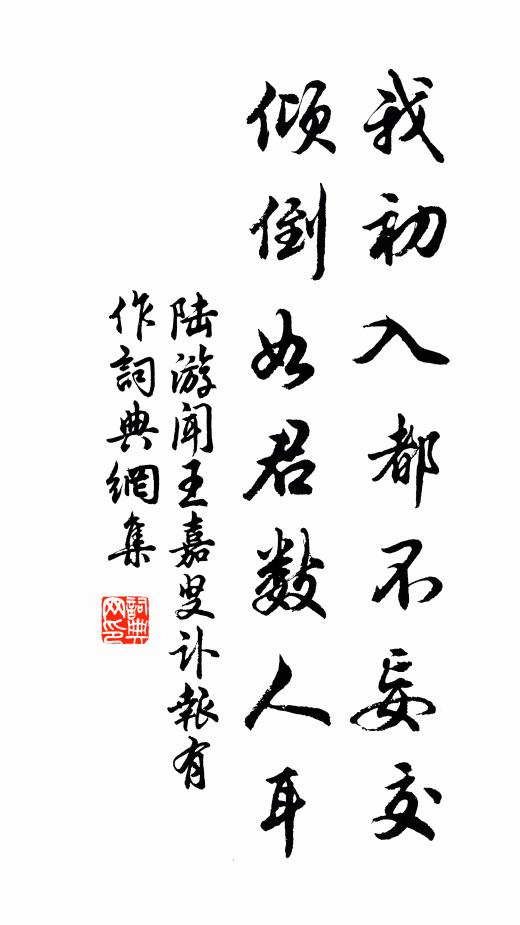 我初入都不妄交
傾倒如君數人耳
陆游闻王嘉叟讣報有
作詞典網集
詞典
网印